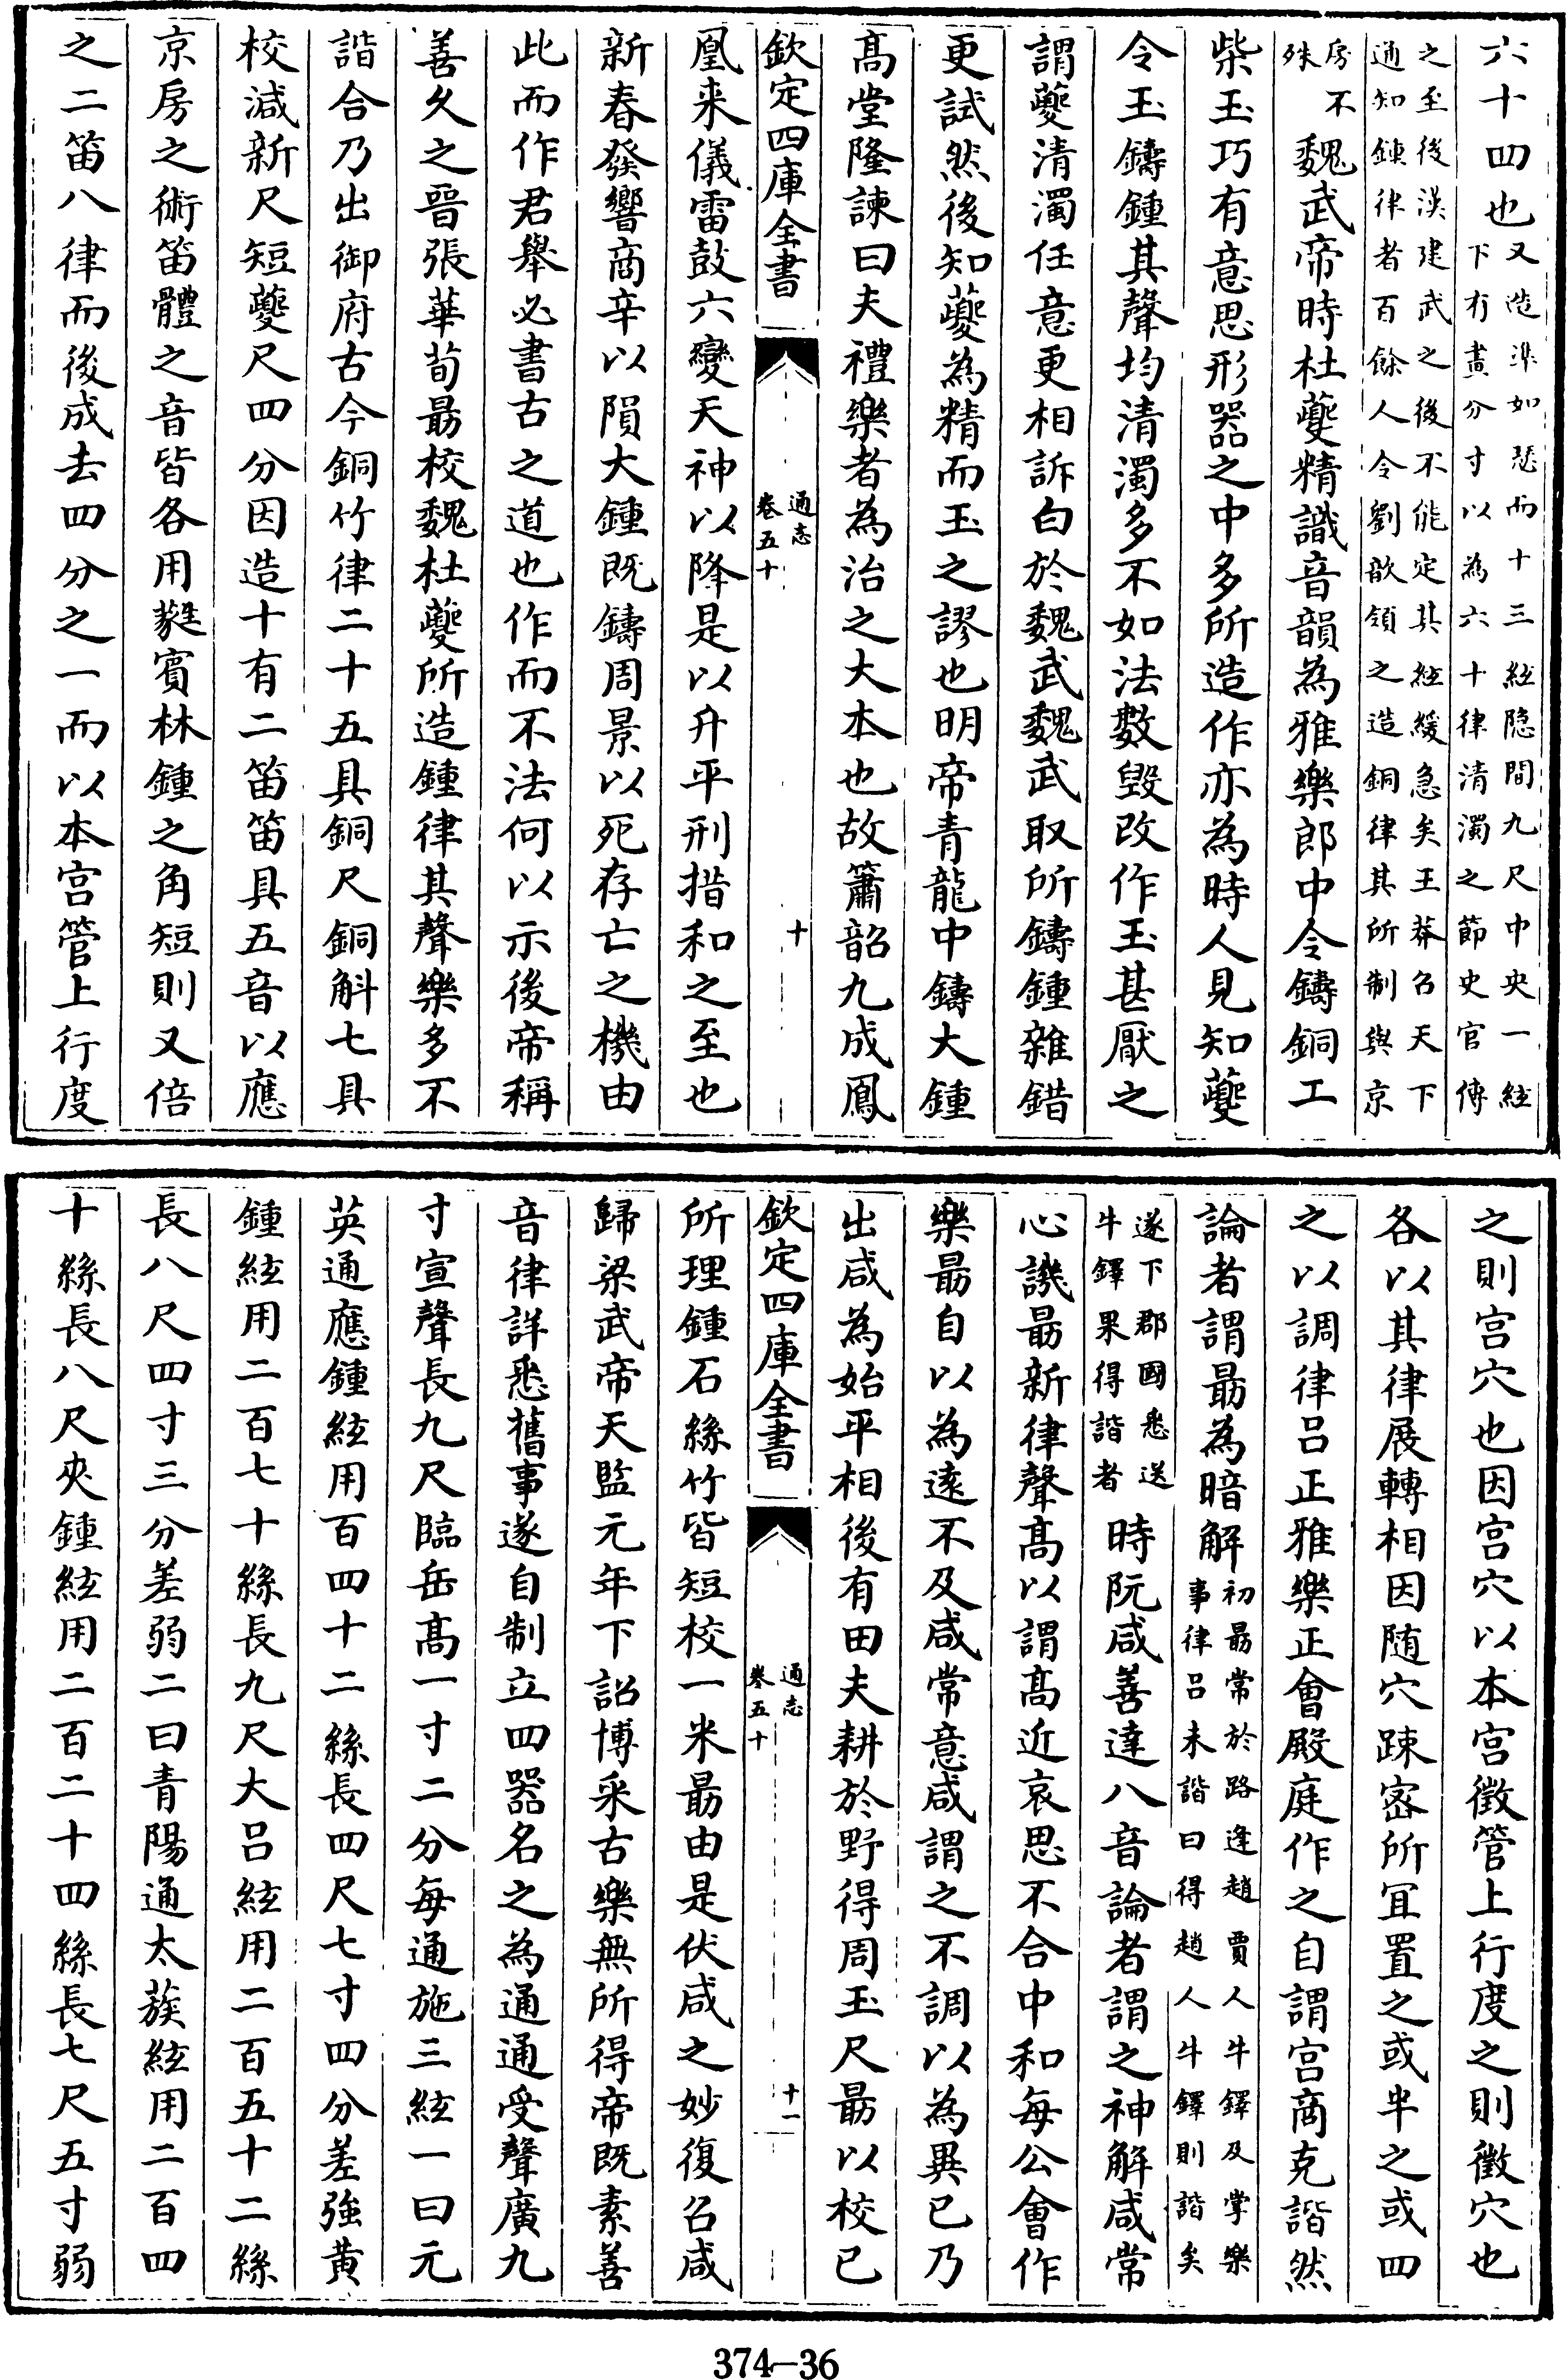 六十四也又造準如瑟而十三絃隐間九尺中央一絃下有畫分寸以為六十律清濁之節史官傳
之至後漢建武之後不能定其絃緩急矣王莽召天下通知鍾律者百餘人令劉歆領之造銅律其所制與京
房不殊魏武帝時杜夔精識音韻為雅樂郎中令鑄銅工
柴玉巧有意思形器之中多所造作亦為時人見知夔
令玉鑄鍾其聲均清濁多不如法數毀改作玉甚厭之
謂夔清濁任意更相訴白於魏武魏武取所鑄鍾雜錯
更試然後知夔為精而玉之謬也明帝青龍中鑄大鍾
髙堂隆諫曰夫禮樂者為治之大本也故簫韶九成鳳
欽定四庫全書
通志
卷五十
十
凰来儀雷鼓六變天神以降是以升平刑措和之至也
新春發響商辛以隕大鍾既鑄周景以死存亡之機由
此而作君舉必書古之道也作而不法何以示後帝稱
善久之晉張華荀朂校魏杜夔所造鍾律其聲樂多不
諧合乃出御府古今銅竹律二十五具銅尺銅斛七具
校減新尺短夔尺四分因造十有二笛笛具五音以應
京房之術笛體之音皆各用蕤賓林鍾之角短則又倍
之二笛八律而後成去四分之一而以本宫管上行度
之則宫穴也因宫穴以本宫徵管上行度之則徵穴也
各以其律展轉相因随穴疎宻所宜置之或半之或四
之以調律吕正雅樂正㑹殿庭作之自謂宫商克諧然
論者謂朂為暗解初朂常於路逢趙賈人牛鐸及掌樂事律吕未諧曰得趙人牛鐸則諧矣
遂下郡國悉送牛鐸果得諧者時阮咸善達八音論者謂之神解咸常
心譏朂新律聲髙以謂髙近哀思不合中和每公㑹作
樂朂自以為逺不及咸常意咸謂之不調以為異已乃
出咸為始平相後有田夫耕於野得周玉尺朂以校已
欽定四庫全書
通志
卷五十
十一
所理鍾石絲竹皆短校一米朂由是伏咸之妙復召咸
歸梁武帝天監元年下詔博采古樂無所得帝既素善
音律詳悉舊事遂自制立四器名之為通通受聲廣九
寸宣聲長九尺臨岳髙一寸二分每通施三絃一曰元
英通應鍾絃用百四十二絲長四尺七寸四分差強黄
鍾絃用二百七十絲長九尺大吕絃用二百五十二絲
長八尺四寸三分差弱二曰青陽通太蔟絃用二百四
十絲長八尺夾鍾絃用二百二十四絲長七尺五寸弱
374-36